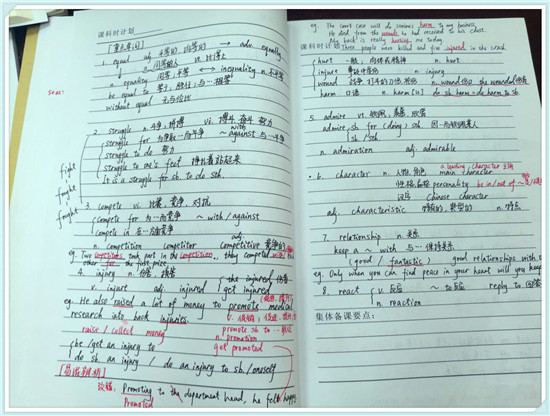 课科时计划
[重点单词]
1. equal adj. 平等的, 同等的 → adv. equally
n. 同等的人 vt. 比得上
n. equality 同等, 平等 ←→ inequality n. 不平等
be equal to 等于, 胜任; 与…相等
without equal 无与伦比
2. struggle n. 斗争, 搏斗 vi. 搏斗 奋斗 努力
struggle for 为争取…而斗争 ~ with/against 与…斗争
struggle to do 努力
struggle to one's feet 挣扎着站起来
It is a struggle for sb to do sth.
fight
fought
fought
3. compete vi. 比赛, 竞争, 对抗
compete for 为…而竞争 ~ with / against
compete in 在…方面竞争
n. competition competitor competitive 竞争的
eg. Two competitors took part in the competition, they competed with
other for the first prize
4. injury n. 伤害, 损害
v. injure adj. injured the injured 伤者
get injured
eg. He also raised a lot of money to promote medical
research into back injuries.
raise / collect money
promote sb to
n. promotion
get promoted
be / get an injury to
do sb. an injury / do an injury to sb. / oneself
[易错辨析]
Promoting to the department head, he felt happy.
Promoted
eg. The court case will do serious harm to my business.
He died from the wounds he had received to his chest.
My back is really hurting me today.
课科时计划 Three people were killed and five injured in the crash
hurt 一般, 肉体或精神 n. hurt
injure 事故中受伤 n. injury
wound 战争, 打斗的刀伤, 枪伤 n. wound
harm n. harm [U] do sb. harm = do harm to sb
5. admire vt. 钦佩, 羡慕, 欣赏
admire sb for (doing) sth 因…而钦佩某人
sb / sth
n. admiration adj. admirable
a leading character 主角
6. character n. 人物, 角色 main character
性格, 品格 personality be in / out of ~
汉字 Chinese character
adj. characteristic 独特的, 典型的 n. 特点
7. relationship n. 关系
keep a ~ with 与…保持关系
(good / fantastic) good relationships with
eg. Only when you can find peace in your heart will you keep
8. react v. 反应 ~ to 反应 reply to 回答
n. reaction
集体备课要点: